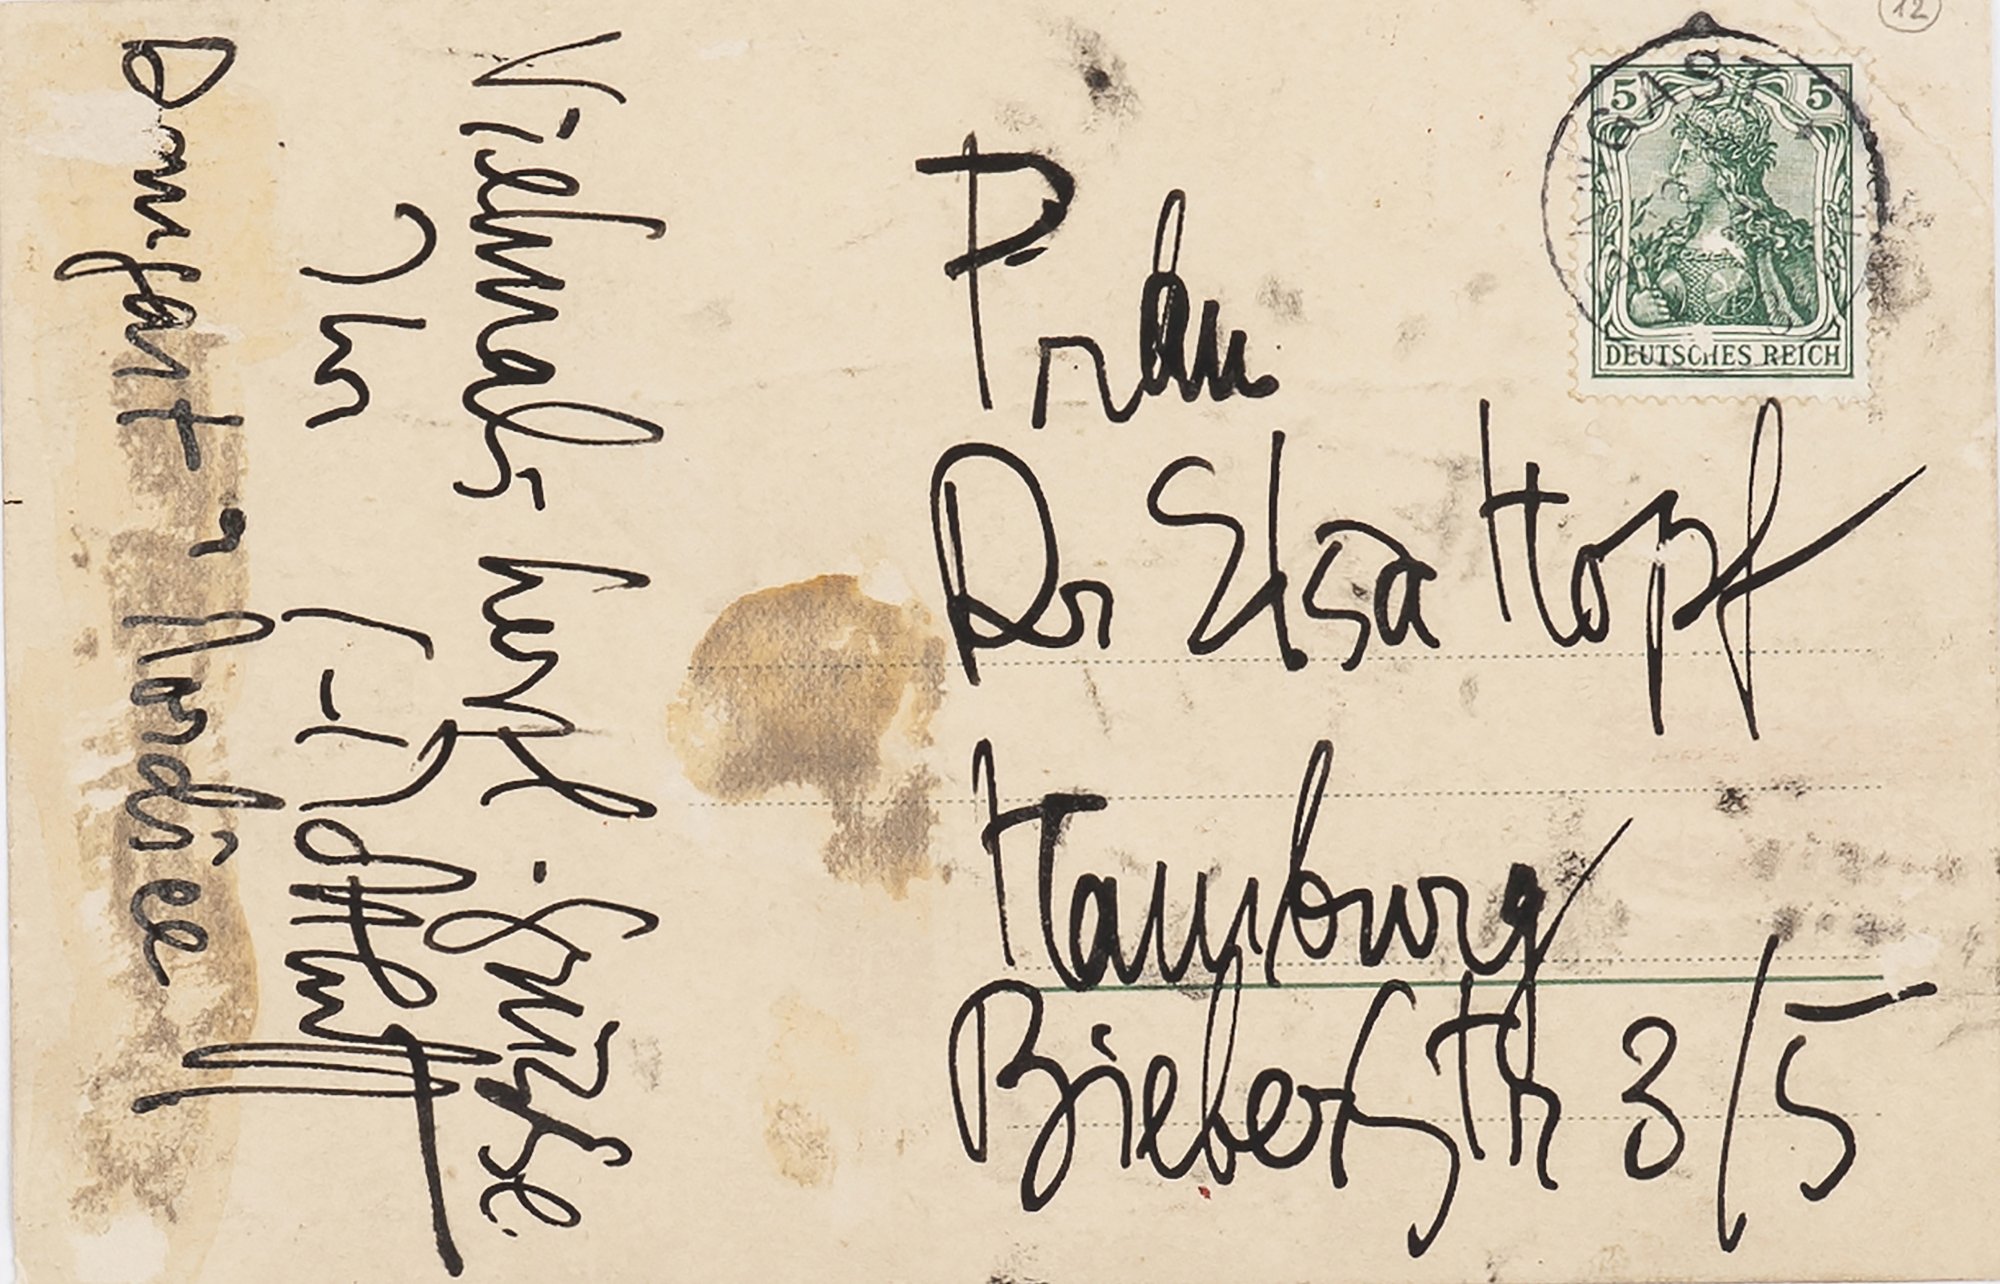 Vielmals herzl. Grüße.
Ihr S-Rottluff
Dangast a Nordsee
12
DANGAST
5 5
DEUTSCHES REICH
Frau
Dr Elsa Hopf
Hamburg
Bieberstr 3/5